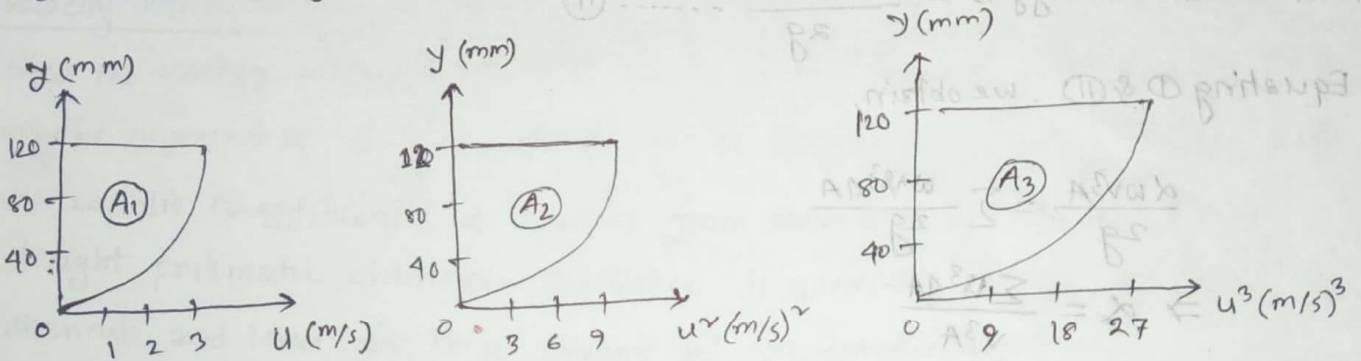 y (mm)
120
80
40
0
1 2 3
u (m/s)
A1
y (mm)
120
80
40
0
3 6 9
u² (m/s)²
A2
y (mm)
120
80
40
0
9 18 27
u³ (m/s)³
A3